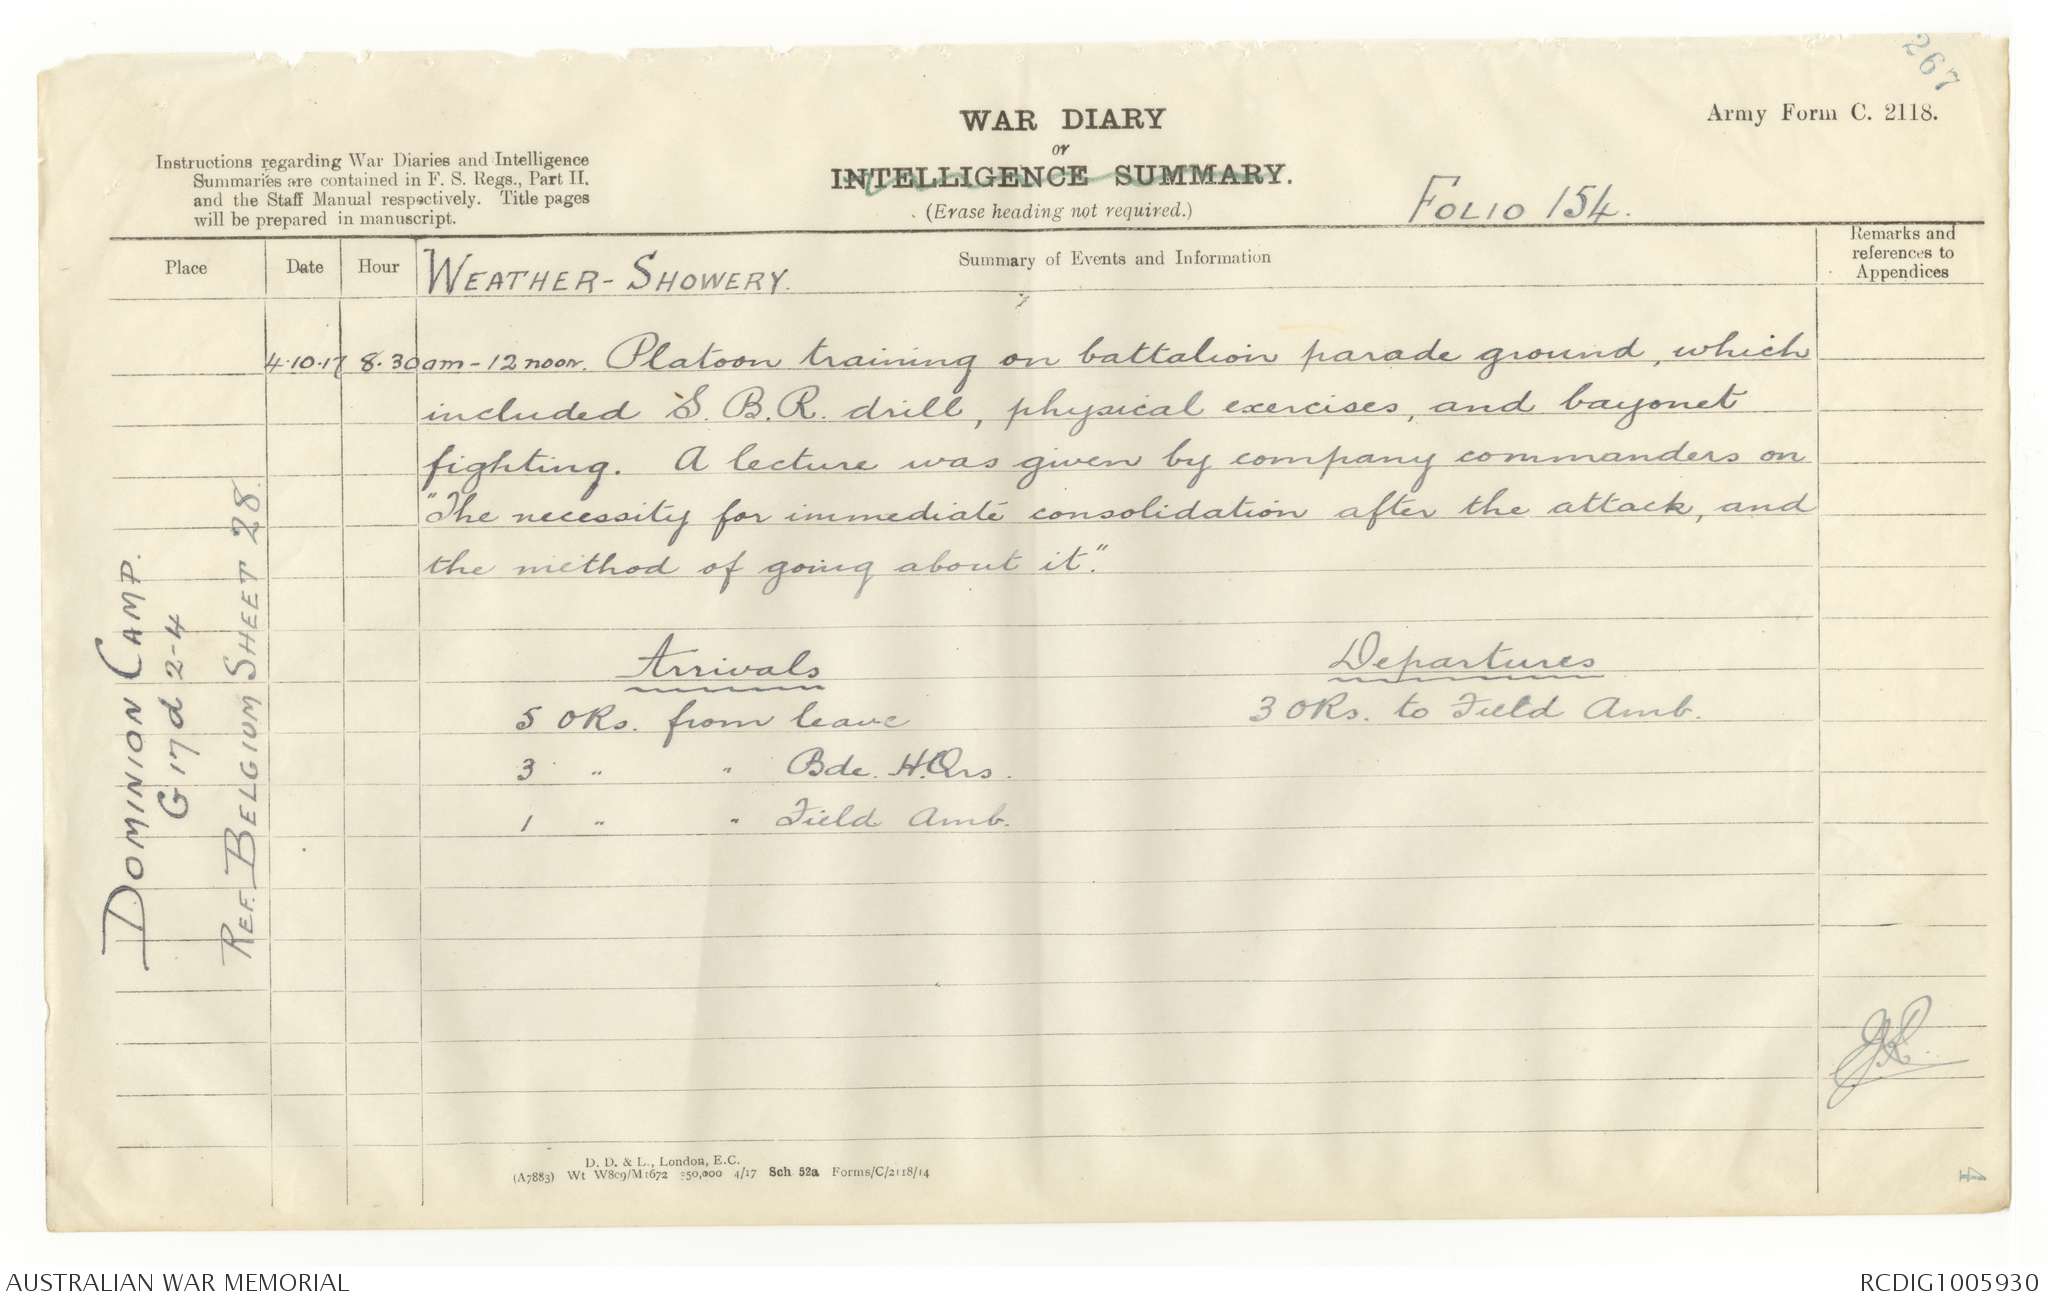 267
Army Form C. 2118.
WAR DIARY
or
INTELLIGENCE SUMMARY.
(Erase heading not required.)
Instructions regarding War Diaries and Intelligence
Summaries are contained in F. S. Regs., Part II.
and the Staff Manual respectively. Title pages
will be prepared in manuscript.
FOLIO 154.
Place
Date
Hour
Summary of Events and Information
Remarks and
references to
Appendices
WEATHER - SHOWERY.
4.10.17 8.30am - 12 noon. Platoon training on battalion parade ground, which
included S.B.R. drill, physical exercises, and bayonet
fighting. A lecture was given by company commanders on
"The necessity for immediate consolidation after the attack, and
the method of going about it."
DOMINION CAMP.
G 17 d 2-4
REF. BELGIUM SHEET 28.
Arrivals
Departures
5 ORs. from leave
3 ORs. to Field Amb.
3 " " Bde. H.Qrs.
1 " " Field Amb.
D. D. & L., London, E.C.
(A7883) Wt W809/M1672 350,000 4/17 Sch 52a Forms/C/2118/14
4
AUSTRALIAN WAR MEMORIAL
RCDIG1005930